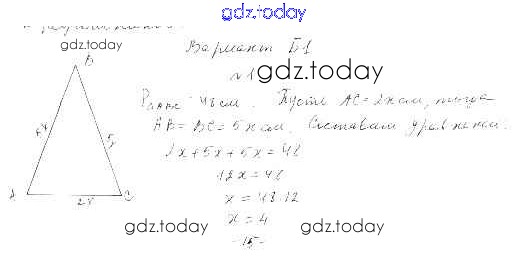 gdz.today
gdz.today
Вариант Б1
N1 gdz.today
B
P ABC = 48 см. Пусть AC = 2x см, тогда
AB = BC = 5x см. Составим уравнение:
5x 5x
2x + 5x + 5x = 48
12x = 48
A 2x C
x = 48:12
x = 4
gdz.today gdz.today
- 15 -